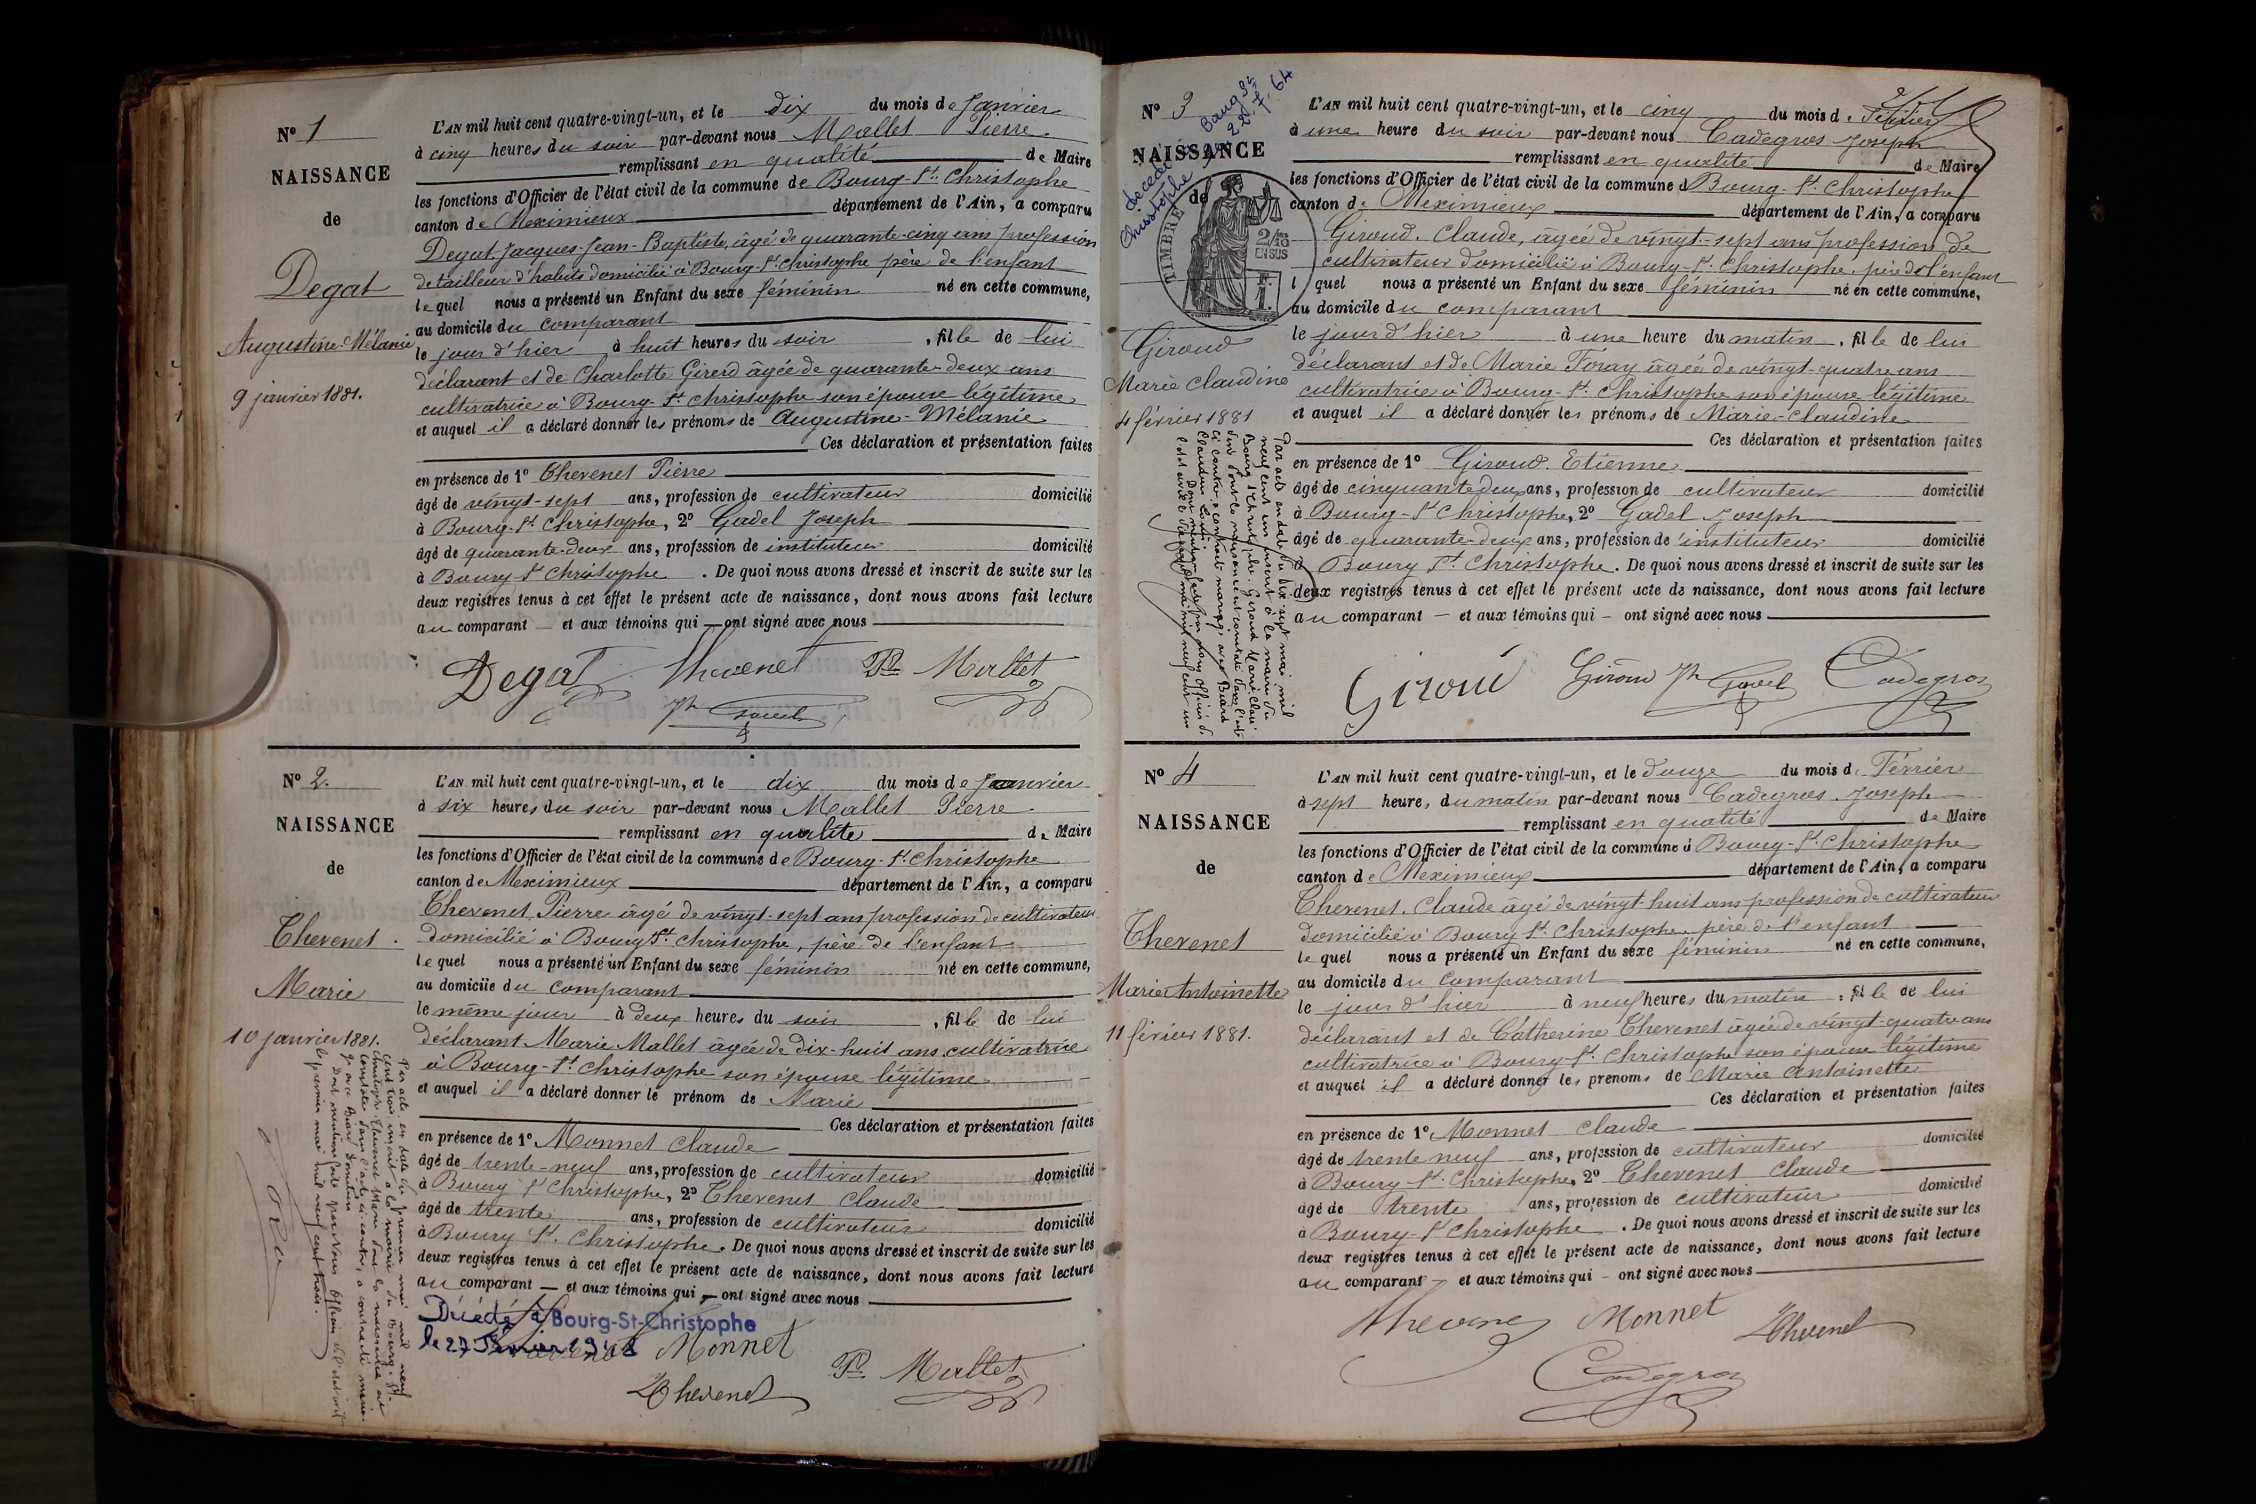 N° 1
NAISSANCE
de
Degat
Augustine-Mélanie
9 janvier 1881.
L'AN mil huit cent quatre-vingt-un, et le dix du mois de Janvier
à cinq heures du soir par-devant nous Mallet Pierre
remplissant en qualité de Maire
les fonctions d'Officier de l'état civil de la commune de Bourg-St Christophe
canton de Meximieux département de l'Ain, a comparu
Degat Jacques-Jean-Baptiste, âgé de quarante-cinq ans profession
de tailleur d'habits domicilié à Bourg-St Christophe père de l'enfant
lequel nous a présenté un Enfant du sexe féminin né en cette commune,
au domicile du comparant
le jour d'hier à huit heures du soir, fille de lui
déclarant et de Charlotte Girerd âgée de quarante-deux ans
cultivatrice à Bourg-St Christophe son épouse légitime
et auquel il a déclaré donner les prénoms de Augustine-Mélanie
Ces déclaration et présentation faites
en présence de 1° Thevenet Pierre
âgé de vingt-sept ans, profession de cultivateur domicilié
à Bourg-St Christophe, 2° Gadel Joseph
âgé de quarante-deux ans, profession de instituteur domicilié
à Bourg-St Christophe. De quoi nous avons dressé et inscrit de suite sur les
deux registres tenus à cet effet le présent acte de naissance, dont nous avons fait lecture
au comparant — et aux témoins qui — ont signé avec nous
Degat Thevenet P. Mallet
Jh Gadel
N° 2.
NAISSANCE
de
Thevenet.
Marie
10 janvier 1881.
L'AN mil huit cent quatre-vingt-un, et le dix du mois de Janvier
à six heures du soir par-devant nous Mallet Pierre
remplissant en qualité de Maire
les fonctions d'Officier de l'état civil de la commune de Bourg-St Christophe
canton de Meximieux département de l'Ain, a comparu
Thevenet, Pierre âgé de vingt-sept ans profession de cultivateur
domicilié à Bourg St Christophe, père de l'enfant
lequel nous a présenté un Enfant du sexe féminin né en cette commune,
au domicile du comparant
le même jour à deux heures du soir, fille de lui
déclarant Marie Mallet âgée de dix-huit ans cultivatrice
à Bourg-St Christophe son épouse légitime
et auquel il a déclaré donner le prénom de Marie
Ces déclaration et présentation faites
en présence de 1° Monnet Claude
âgé de trente-neuf ans, profession de cultivateur domicilié
à Bourg St Christophe, 2° Thevenet Claude
âgé de trente ans, profession de cultivateur domicilié
à Bourg St Christophe. De quoi nous avons dressé et inscrit de suite sur les
deux registres tenus à cet effet le présent acte de naissance, dont nous avons fait lecture
au comparant — et aux témoins qui — ont signé avec nous
Par acte en date du premier mai mil neuf
cent trois inscrit à la mairie du Bourg-St
Christophe Thevenet Marie dont la naissance est
constatée dans l'acte ci-contre, a contracté maria-
ge avec Biard
Dont mention faite par Nous Officier de l'état civil
le premier mai mil neuf cent trois.
Décédée à Bourg-St-Christophe
le 27 Février 1948
Thevenet Monnet
Thevenet P. Mallet
N° 3
décédée à Bourg St
Christophe 22.7.64
NAISSANCE
de
TIMBRE
2/10 EN SUS
1 F.
Giroud
Marie Claudine
4 février 1881
L'AN mil huit cent quatre-vingt-un, et le cinq du mois de Février
à une heure du soir par-devant nous Cadegros Joseph
remplissant en qualité de Maire
les fonctions d'Officier de l'état civil de la commune d Bourg-St Christophe
canton de Meximieux département de l'Ain, a comparu
Giroud. Claude, âgée de vingt-sept ans profession de
cultivateur domicilié à Bourg-St Christophe. père de l'enfant
l quel nous a présenté un Enfant du sexe féminin né en cette commune,
au domicile du comparant
le jour d'hier à une heure du matin, fille de lui
déclarant et de Marie Foray âgée de vingt-quatre ans
cultivatrice à Bourg-St Christophe son épouse légitime
et auquel il a déclaré donner les prénoms de Marie-Claudine
Ces déclaration et présentation faites
en présence de 1° Giroud. Etienne
âgé de cinquante deux ans, profession de cultivateur domicilié
à Bourg-St Christophe, 2° Gadel Joseph
âgé de quarante-deux ans, profession de instituteur domicilié
à Bourg St Christophe. De quoi nous avons dressé et inscrit de suite sur les
deux registres tenus à cet effet le présent acte de naissance, dont nous avons fait lecture
au comparant — et aux témoins qui — ont signé avec nous
Par acte en date du dix sept mai mil
neuf cent un inscrit à la mairie du
Bourg St Christophe. Giroud Marie Clau-
dine dont la naissance est constatée dans l'acte
ci contre a contracté mariage avec Biard
Claudius Louis
Dont mention faite par nous Officier de
l'état civil
Giroud Giroud Jh Gadel Cadegros
N° 4
NAISSANCE
de
Thevenet
Marie Antoinette
11 février 1881.
L'AN mil huit cent quatre-vingt-un, et le douze du mois de Février
à sept heures du matin par-devant nous Cadegros. Joseph
remplissant en qualité de Maire
les fonctions d'Officier de l'état civil de la commune d Bourg-St Christophe
canton de Meximieux département de l'Ain, a comparu
Thevenet. Claude âgé de vingt-huit ans profession de cultivateur
domicilié à Bourg St Christophe. père de l'enfant
lequel nous a présenté un Enfant du sexe féminin né en cette commune,
au domicile du comparant
le jour d'hier à neuf heures du matin, fille de lui
déclarant et de Catherine Thevenet âgée de vingt-quatre ans
cultivatrice à Bourg-St Christophe son épouse légitime
et auquel il a déclaré donner les prénoms de Marie Antoinette
Ces déclaration et présentation faites
en présence de 1° Monnet Claude
âgé de trente neuf ans, profession de cultivateur domicilié
à Bourg St Christophe, 2° Thevenet Claude
âgé de trente ans, profession de cultivateur domicilié
à Bourg-St Christophe. De quoi nous avons dressé et inscrit de suite sur les
deux registres tenus à cet effet le présent acte de naissance, dont nous avons fait lecture
au comparant — et aux témoins qui — ont signé avec nous
Thevenet Monnet Thevenet
Cadegros